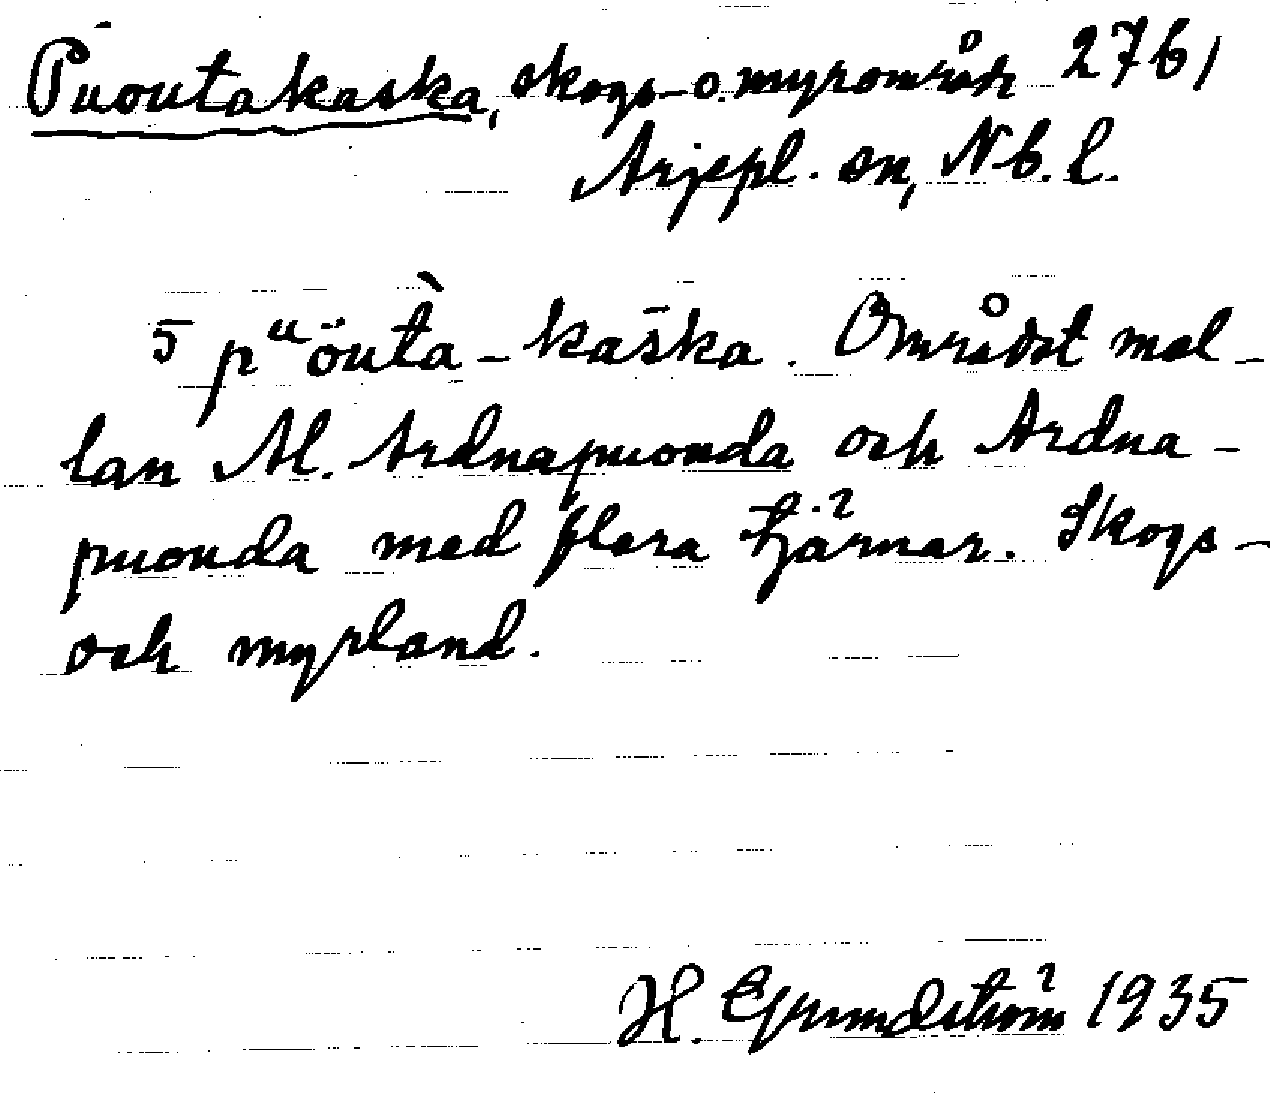 Puoutakaska, skogs- o. myrområde 276,
Arjepl. sn, Nb. l.
5 pᵘöutà-kaška. Området mel-
lan Al. Ardnapuouda och Ardna-
puouda med flera tjärnar. Skogs-
och myrland.
H. Grundström 1935